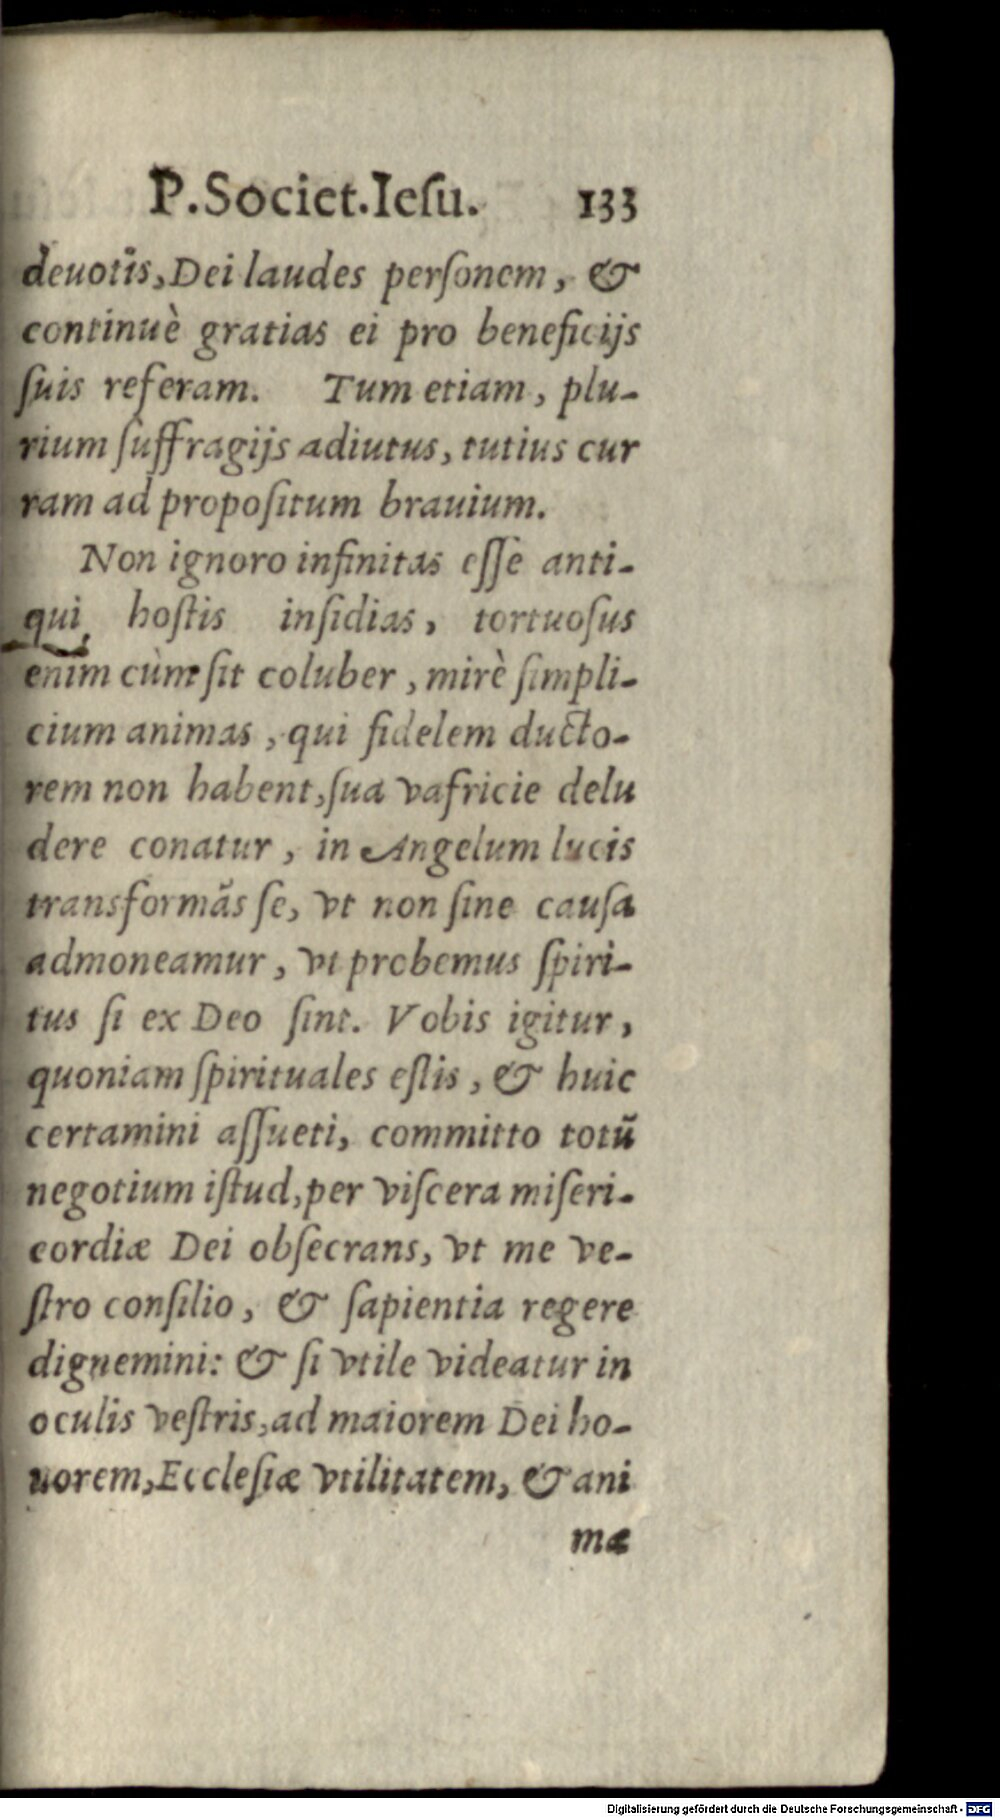 P. Societ. Iesu. 133
deuotis, Dei laudes perſonem, &
continuè gratias ei pro beneficijs
ſuis referam. Tum etiam, plu-
rium ſuffragijs adiutus, tutius cur
ram ad propoſitum brauium.
Non ignoro infinitas eſſe anti-
qui hoſtis inſidias, tortuoſus
enim cùm ſit coluber, mirè ſimpli-
cium animas, qui fidelem ducto-
rem non habent, ſua vafricie delu
dere conatur, in Angelum lucis
transformãs ſe, vt non ſine cauſa
admoneamur, vt probemus ſpiri-
tus ſi ex Deo ſint. Vobis igitur,
quoniam ſpirituales eſtis, & huic
certamini aſſueti, committo totũ
negotium iſtud, per viſcera miſeri-
cordiæ Dei obſecrans, vt me ve-
ſtro conſilio, & ſapientia regere
dignemini: & ſi vtile videatur in
oculis veſtris, ad maiorem Dei ho-
norem, Eccleſiæ vtilitatem, & ani
mæ
Digitalisierung gefördert durch die Deutsche Forschungsgemeinschaft - DFG